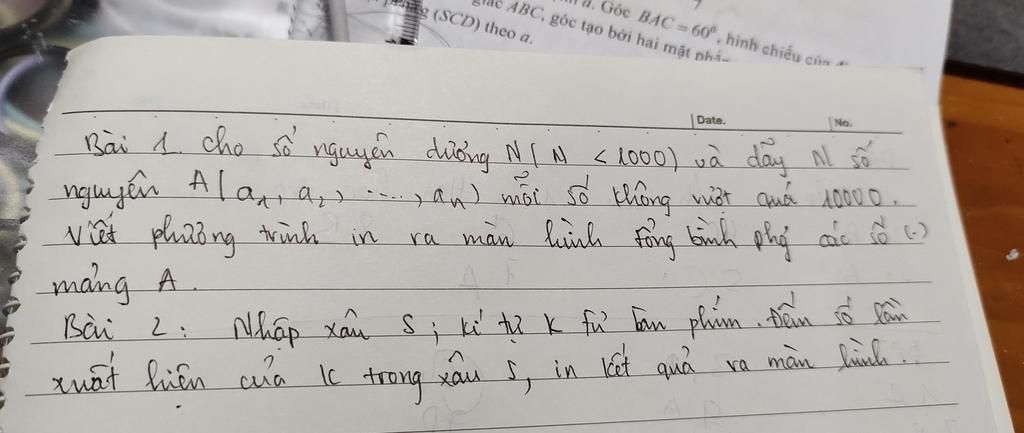 giác ABC, góc tạo bởi hai mặt
a. Góc BAC = 60°, hình chiếu của
(SCD) theo a.
Date.
No.
Bài 1. Cho số nguyên dương N( N < 1000) và dãy N số
nguyên A( a₁, a₂, ..., aₙ) mỗi số không vượt quá 10000.
Viết phương trình in ra màn hình tổng bình phg các số (.)
mảng A.
Bài 2: Nhập xâu S; kí tự K từ bàn phím. Đếm số lần
xuất hiện của K trong xâu S, in kết quả ra màn hình.